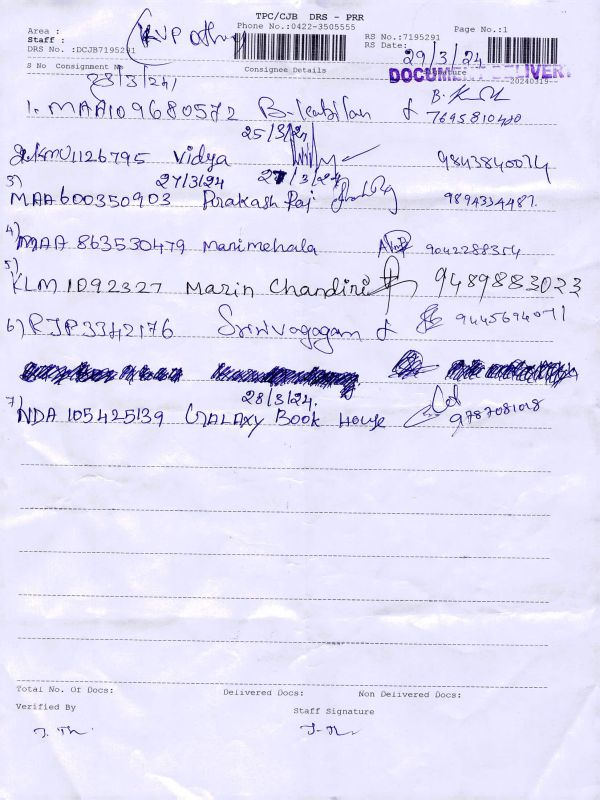 TPC/CJB DRS - PRR
Area :
Phone No.:0422-3505555
Page No.:1
Staff :
KVP
RS No.:7195291
DRS No. :DCJB7195291
RS Date:
29/3/24
DOCUMENT DELIVERY
S No Consignment No
Consignee Details
Signature
20240319
28/3/24
1. MAA109680572 B. Kabilan
7695810400
25/3/24
KMU1126795 Vidya 9843840074
27/3/24 27/3/24
3) MAA600350903 Prakash Raj 9894334487.
4) MAA 863530479 Marimehala 9042288354
5) KLM 1092327 Marin Chandiri 9489883023
6) RJP3342176 9445694071
28/3/24.
7) NDA 105425139 GALAXY Book House 9787081018
Total No. Of Docs: Delivered Docs: Non Delivered Docs:
Verified By
Staff Signature